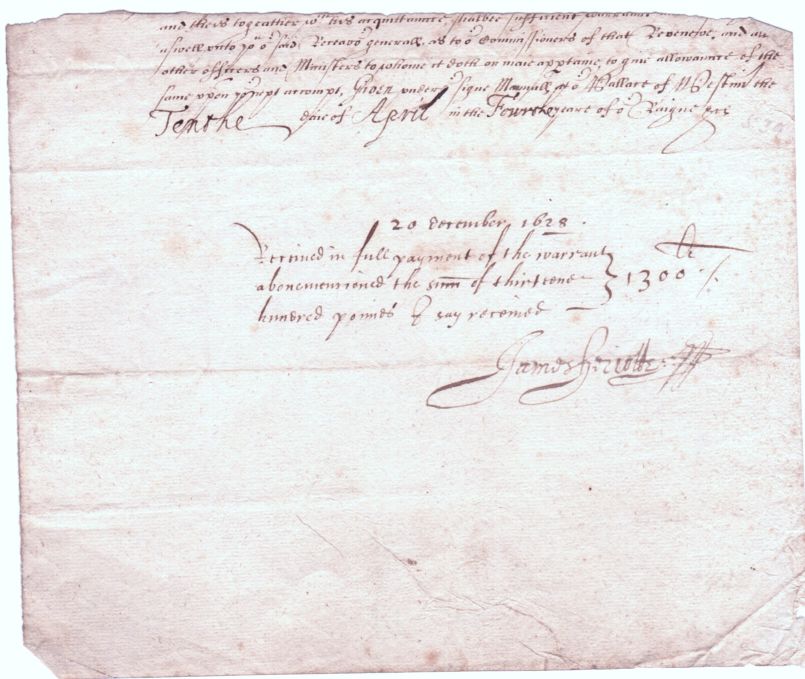 and theis togeather wth his acquittaunce shalbee sufficient warraunt
aswell unto yo o said Receavor generall, as to o Commissioners of that Revenewe, and all
other officers and Ministers to whome it doth or maie apptaine, to give allowaunce of the
same upon yor accompt, Given under o Signe Manuall, at o Pallace of Westmr the
Tenthe daie of April in the Fourthe yeare of o Raigne
20 december 1628.
Receiued in full payment of the warrant
abouementioned the sum of thirteene
hundred pounds I say receiued
1300 li
James Heriotte